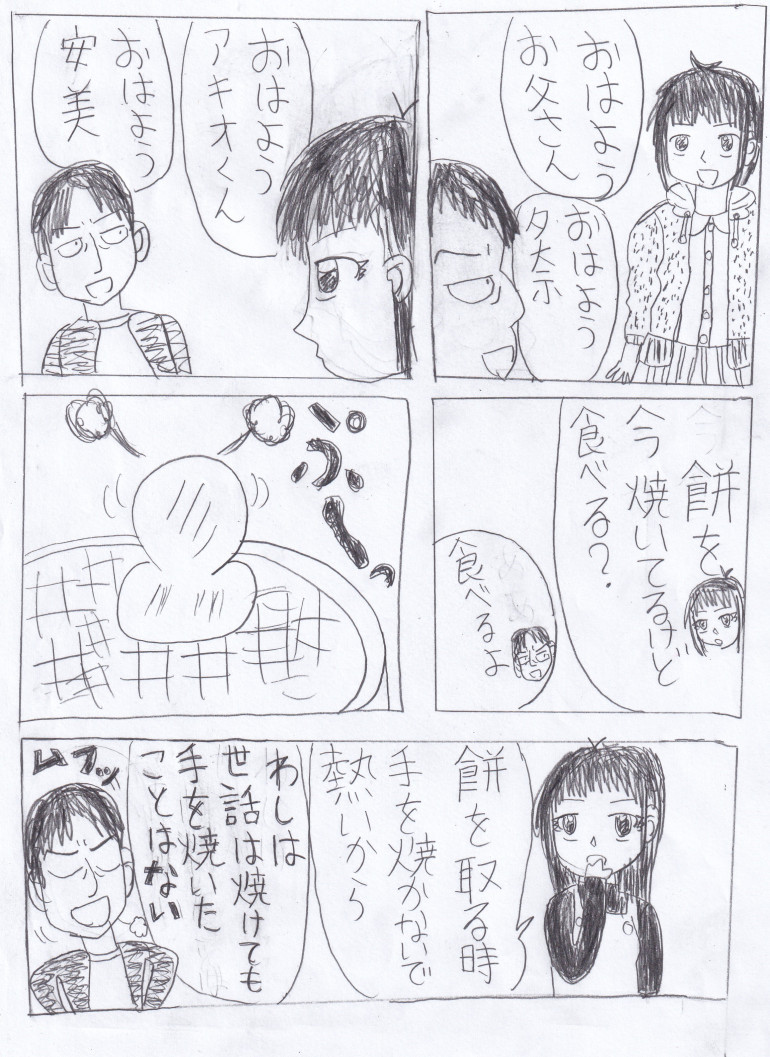 おはよう
お父さん
おはよう
夕奈
おはよう
アキオくん
おはよう
安美
餅を
今焼いてるけど
食べる?
食べるよ
ぷうーっ
餅を取る時
手を焼かないで
熱いから
わしは
世話は焼けても
手を焼いた
ことはない
ムフッ